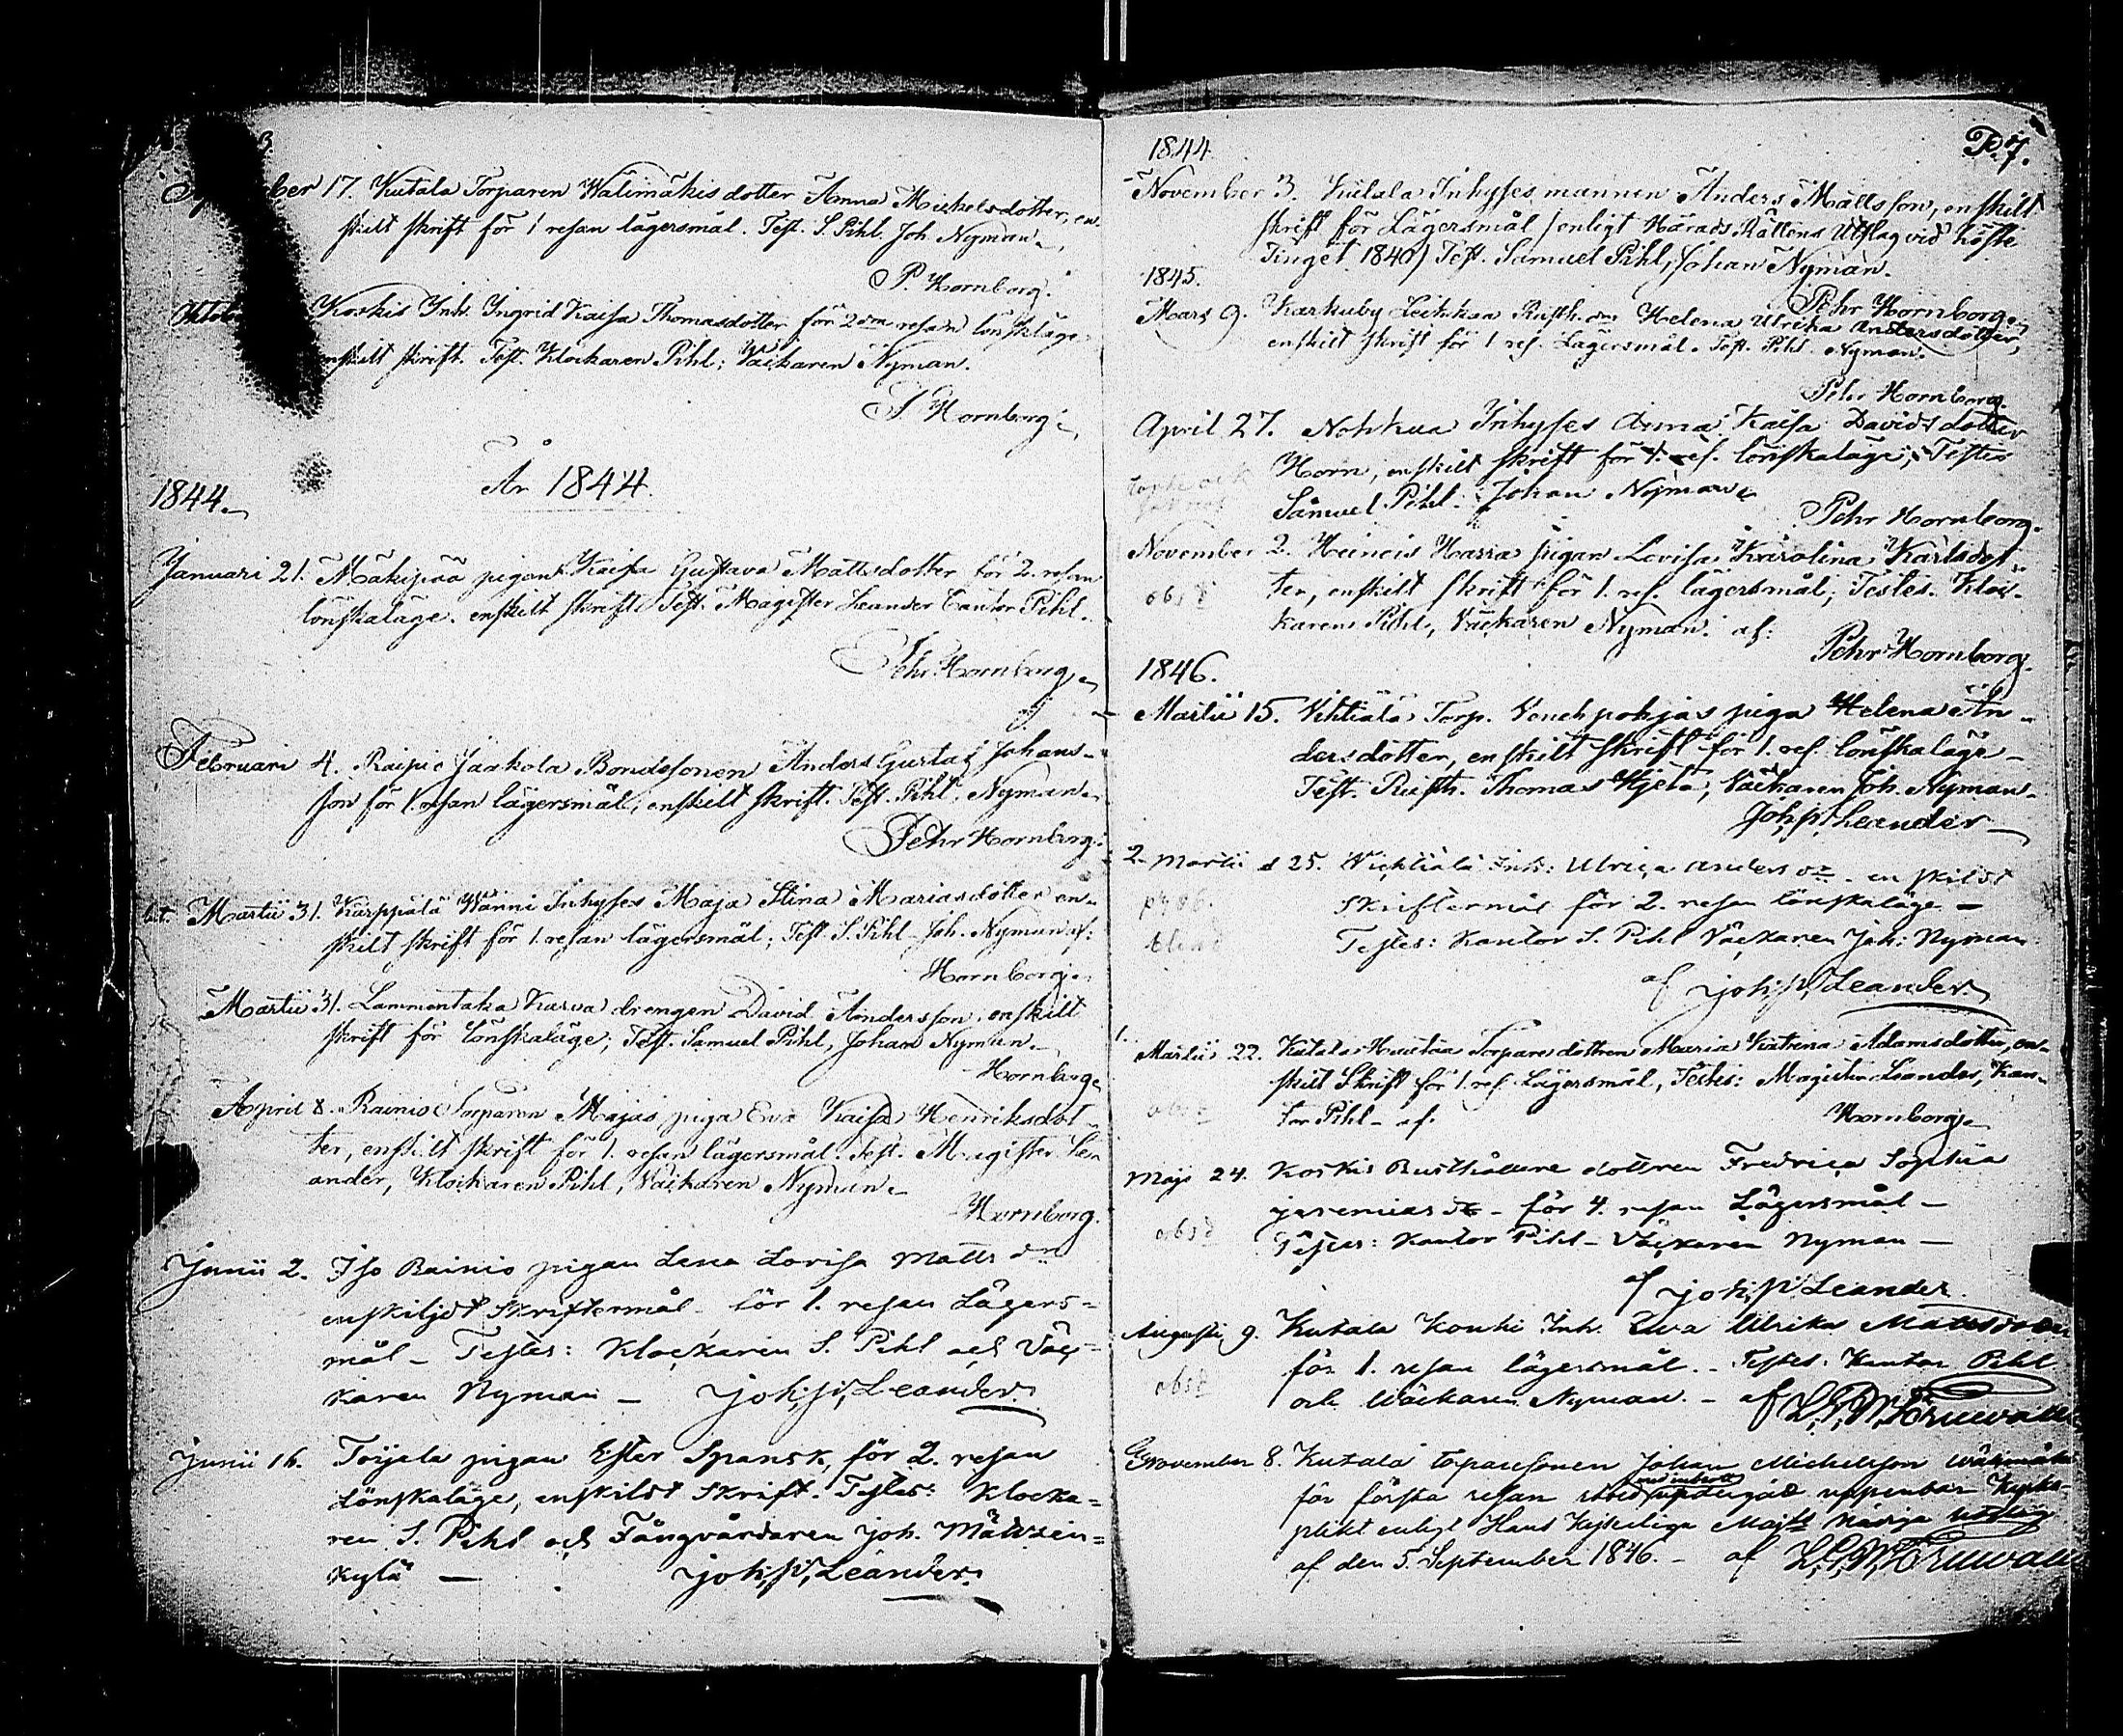 17. Kutala Torparen Wälimäkis dotter Anna Mickelsdotter, en-
skilt skrift för 1 resan lägersmål. Test. S. Pihl. Joh. Nyman.
P. Hornborg.
Koskis Inh. Ingrid Kaisa Thomasdotter för 2dra resan lönskläge
enskilt skrift. Test. Klockaren Pihl; Väckaren Nyman.
P Hornborg
År 1844.
1844.
Januari 21. Mäkipää pigan Kaisa Gustava Mattsdotter för 2. resan
lönskaläge. enskilt skrift. Test. Magister Leander Cantor Pihl.
Pehr Hornborg
Februari 4. Raipio Jaakola Bondesonen Anders Gustaf Johans-
son för 1 resan lägersmål, enskilt skrift. Test. Pihl. Nyman.
Pehr Hornborg.
Martii 31. Kärppälä Wänni Inhyses Maja Stina Mariasdotter en-
skilt skrift för 1. resan lägersmål; Test. S. Pihl Joh. Nyman af:
Hornborg.
Martii 31. Lammentaka Karva drengen David Andersson, enskilt
skrift för Lönskaläge; Test. Samuel Pihl, Johan Nyman.
Hornborg
April 8. Rainio Torparen Majas piga Eva Kaisa Henriksdot-
ter, enskilt skrift för 1. resan lägersmål. Test. Magister Le-
ander, Klockaren Pihl, Väckaren Nyman.
Hornborg.
Junii 2. Iso Rainio pigan Lena Lovisa Matts dr
enskiljdt Skriftermål för 1. resan Lägers=
mål – Testes: Klockaren S. Pihl och Väc=
karen Nyman – Joh: Leander.
Junii 16. Töijala pigan Ester Spansk, för 2. resan
Lönskaläge, enskildt Skrift. Testes: Klocka=
ren S. Pihl och Fångvårdaren Joh.
kylä – Joh: Leander.
1844
November 3. Kutala Inhysesmannen Anders Mattsson, enskilt
skrift för Lägersmål (enligt Härads Rättens Utslag vid höste
Tinget 1840) Test. Samuel Pihl, Johan Nyman.
Pehr Hornborg
1845.
Mars 9. Karkuby Leikkaa Rusth. Helena Ulrika Andersdotter,
enskilt skrift för 1 res. Lägersmål. Test. Pihl. Nyman.
Pehr Hornborg.
April 27. Nohkua Inhyses Anna Kaisa Davidsdotter
Horn, enskilt skrift för 1. res. lönskaläge; Testes
Samuel Pihl. Johan Nyman.
Pehr Hornborg.
November 2. Heineis Harra pigan Lovisa Karolina Karlsdot-
obsd ter, enskilt skrift för 1. res. lägersmål; Testes. Kloc-
karen Pihl, Väckaren Nyman. af:
Pehr Hornborg.
1846.
Martii 15. Vihtiälä Torp. Venehpohjas piga Helena An-
dersdotter, enskilt skrift för 1. res. lönskaläge –
Test. Rusth. Thomas Hjelt, Väckaren Joh. Nyman.
Joh: Leander
2. Martii d 25. Wichtiälä Inh: Ulrica Anders dr – enskildt
Skriftermål för 2. resan lönskaläge –
Testes: Kantor S. Pihl Väckaren Joh: Nyman
af Joh: Leander.
1.
Martii 22. Kutala Torparedottren Maria Katrina Adamsdotter, en-
skilt Skrift för 1. res. Lägersmål, Testes: Magister Leander, Kan-
obsd tor Pihl – af.
Hornborg
Maji 24. Koskis Rusthållare dottren Fredrica Sophia
Jeremias dr – för 4. resan Lägersmål –
obsd Testes: Kantor Pihl – Väckaren Nyman –
af Joh: Leander.
Augusti 9. Kutala Kouhi Inh. Eva Ulrika Mattsdotter
för 1. resan lägersmål. – Testes: Kantor Pihl
obsd och Wäckaren Nyman. – af
November 8. Kutala torparesonen Johan Michelsson Wälimäki
för första resan uppenbar Kyrko-
plikt enligt Hans Kejserliga Majts
af den 5. September 1846. – af